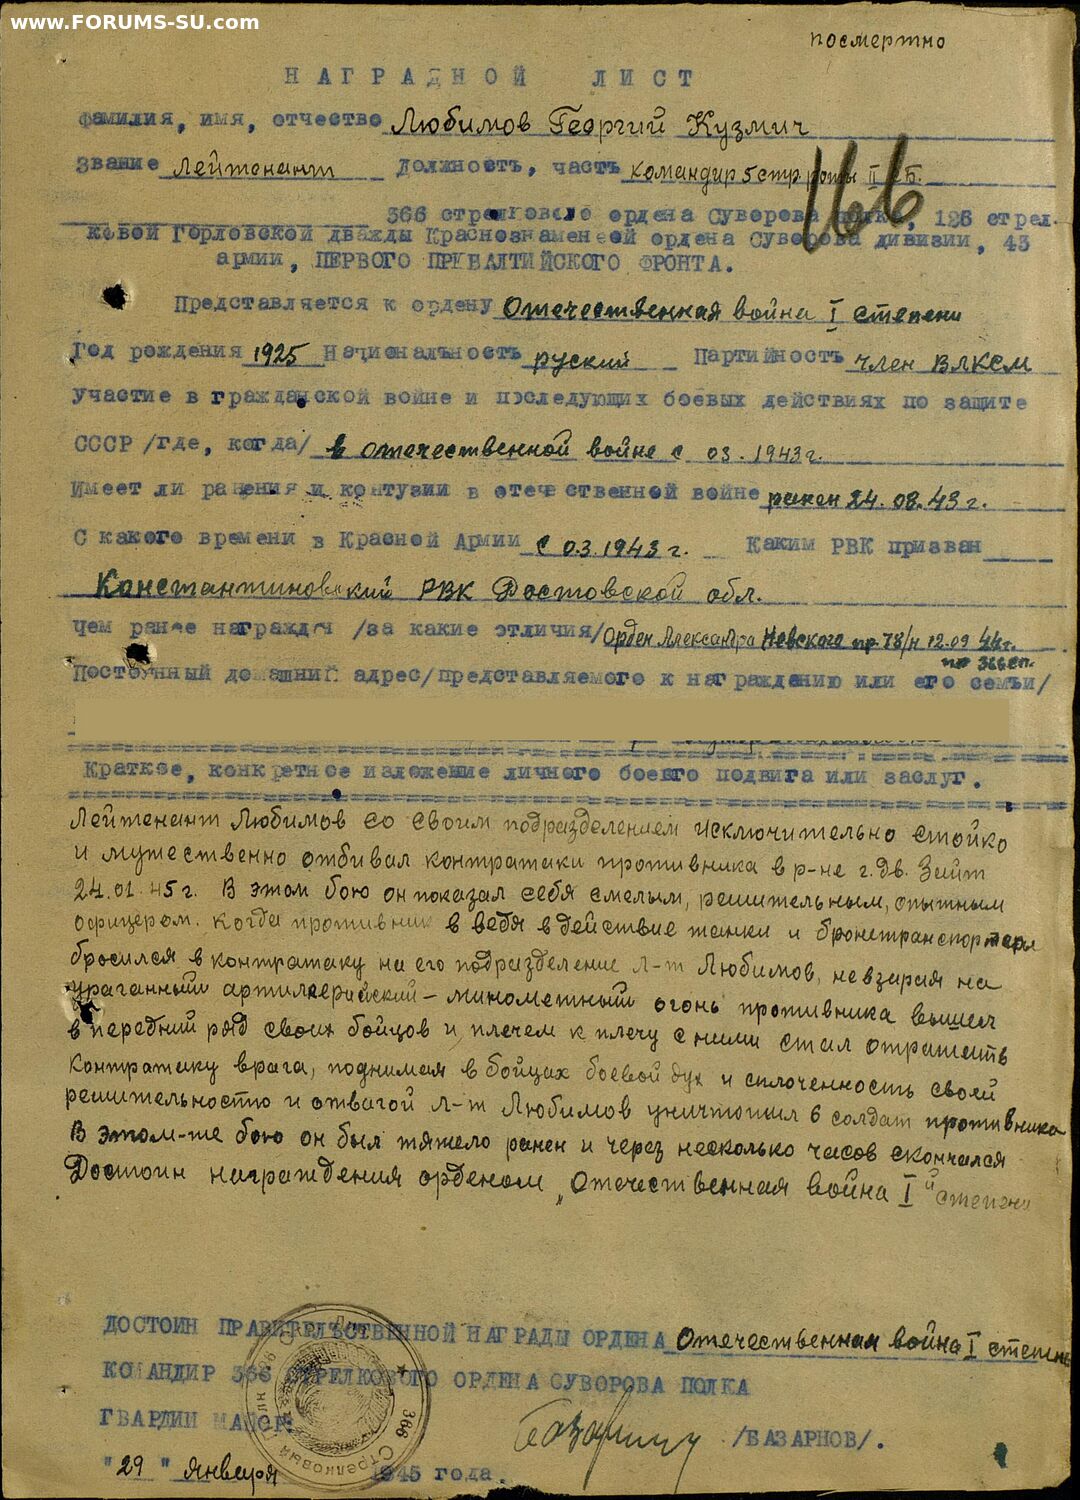 www.FORUMS-SU.com
посмертно
НАГРАДНОЙ ЛИСТ
Фамилия, имя, отчество Любимов Георгий Кузмич
Звание лейтенант Должность, часть командир 5 стр роты II СБ.
166
366 стрелкового ордена Суворова полка, 126 стрел-
ковой Горловской дважды Краснознаменной ордена Суворова дивизии, 43
армии, ПЕРВОГО ПРИБАЛТИЙСКОГО ФРОНТА.
Представляется к ордену Отечественная война I степени
Год рождения 1925 Национальность руский Партийность член ВЛКСМ
Участие в гражданской войне и последующих боевых действиях по защите
СССР /где, когда/ в отечественной войне с 03.1943г.
Имеет ли ранения и контузии в отечественной войне ранен 24.08.43г.
С какого времени в Красной Армии с 03.1943г. Каким РВК призван
Константиновский РВК Ростовской обл.
Чем ранее награжден /за какие отличия/ Орден Александра Невского пр. 78/н 12.09 44г.
по 366сп.
Постоянный домашний адрес/представляемого к награждению или его семьи/
Краткое, конкретное изложение личного боевого подвига или заслуг.
Лейтенант Любимов со своим подразделением исключительно стойко
и мужественно отбивал контратаки противника в р-не г.дв. Зайт
24.01.45г. В этом бою он показал себя смелым, решительным, опытным
офицером. Когда противник в ведя в действие танки и бронетранспортеры
бросился в контратаку на его подразделение Л-т Любимов, невзирая на
ураганный артиллерийский-минометный огонь противника вышел
в передний ряд своих бойцов и плечем к плечу с ними стал отражать
контратаку врага, поднимая в бойцах боевой дух и сплоченность своей
решительностю и отвагой Л-т Любимов уничтожил 6 солдат противника
В этом-же бою он был тяжело ранен и через несколько часов скончался
Достоин награждения орденом „Отечественная война I й степени
ДОСТОИН ПРАВИТЕЛЬСТВЕННОЙ НАГРАДЫ ОРДЕНА Отечественная война I степень
КОМАНДИР 366 СТРЕЛКОВОГО ОРДЕНА СУВОРОВА ПОЛКА
ГВАРДИИ МАЙОР: /БАЗАРНОВ/.
366 Стрелковый
"29" января 1945 года.